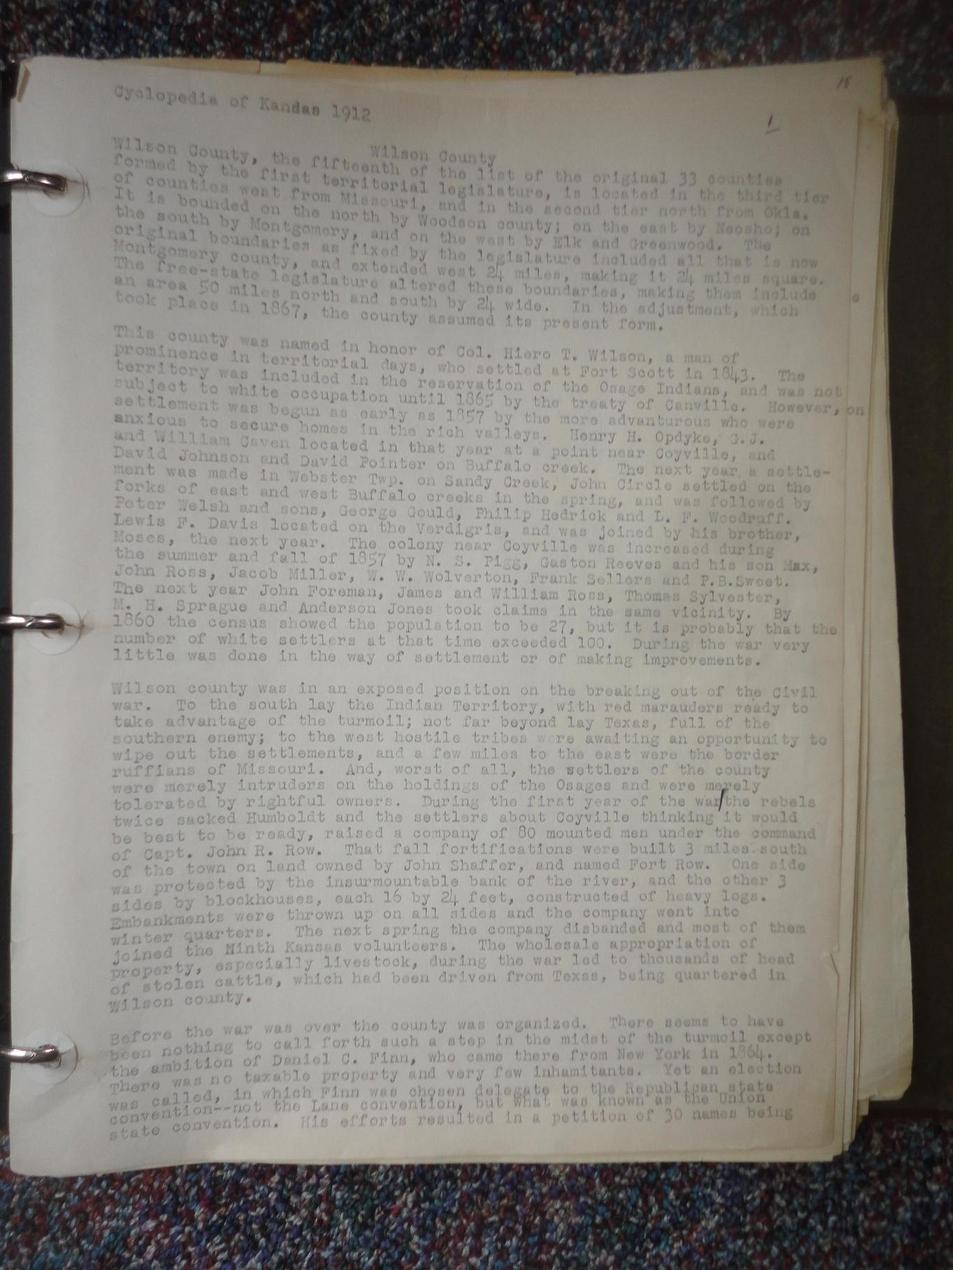 18
Cyclopedia of Kandas 1912
1
Wilson County
Wilson County, the fifteenth of the list of the original 33 counties
formed by the first territorial legislature, is located in the third tier
of counties west from Missouri, and in the second tier north from Okla.
It is bounded on the north by Woodson county; on the east by Neosho; on
the south by Montgomery, and on the west by Elk and Greenwood. The
original boundaries as fixed by the legislature included all that is now
Montgomery county, and extended west 24 miles, making it 24 miles square.
The free-state legislature altered these boundaries, making them include
an area 50 miles north and south by 24 wide. In the adjustment, which
took place in 1867, the county assumed its present form.
This county was named in honor of Col. Hiero T. Wilson, a man of
prominence in territorial days, who settled at Fort Scott in 1843. The
territory was included in the reservation of the Osage Indians, and was not
subject to white occupation until 1865 by the treaty of Canville. However, on
settlement was begun as early as 1857 by the more advanturous who were
anxious to secure homes in the rich valleys. Henry H. Opdyke, G.J.
and William Caven located in that year at a point near Coyville, and
David Johnson and David Pointer on Buffalo creek. The next year a settle-
ment was made in Webster Twp. on Sandy Creek, John Circle settled on the
forks of east and west Buffalo creeks in the spring, and was followed by
Peter Welsh and sons, George Gould, Philip Hedrick and L. F. Woodruff.
Lewis F. Davis located on the Verdigris, and was joined by his brother,
Moses, the next year. The colony near Coyville was increased during
the summer and fall of 1857 by N. S. Pigg, Gaston Reeves and his son Max,
John Ross, Jacob Miller, W. W. Wolverton, Frank Sellers and P.B.Sweet.
The next year John Foreman, James and William Ross, Thomas Sylvester,
M. H. Sprague and Anderson Jones took claims in the same vicinity. By
1860 the census showed the population to be 27, but it is probably that the
number of white settlers at that time exceeded 100. During the war very
little was done in the way of settlement or of making improvements.
Wilson county was in an exposed position on the breaking out of the Civil
war. To the south lay the Indian Territory, with red marauders ready to
take advantage of the turmoil; not far beyond lay Texas, full of the
southern enemy; to the west hostile tribes were awaiting an opportunity to
wipe out the settlements, and a few miles to the east were the border
ruffians of Missouri. And, worst of all, the settlers of the county
were merely intruders on the holdings of the Osages and were merely
tolerated by rightful owners. During the first year of the war/the rebels
twice sacked Humboldt and the settlers about Coyville thinking it would
be best to be ready, raised a company of 80 mounted men under the command
of Capt. John R. Row. That fall fortifications were built 3 miles south
of the town on land owned by John Shaffer, and named Fort Row. One side
was protected by the insurmountable bank of the river, and the other 3
sides by blockhouses, each 16 by 24 feet, constructed of heavy logs.
Embankments were thrown up on all sides and the company went into
winter quarters. The next spring the company disbanded and most of them
joined the Ninth Kansas volunteers. The wholesale appropriation of
property, especially livestock, during the war led to thousands of head
of stolen cattle, which had been driven from Texas, being quartered in
Wilson county.
Before the war was over the county was organized. There seems to have
been nothing to call forth such a step in the midst of the turmoil except
the ambition of Daniel C. Finn, who came there from New York in 1864.
There was no taxable property and very few inhamitants. Yet an election
was called, in which Finn was chosen delegate to the Republican state
convention--not the Lane convention, but what was known as the Union
state convention. His efforts resulted in a petition of 30 names being